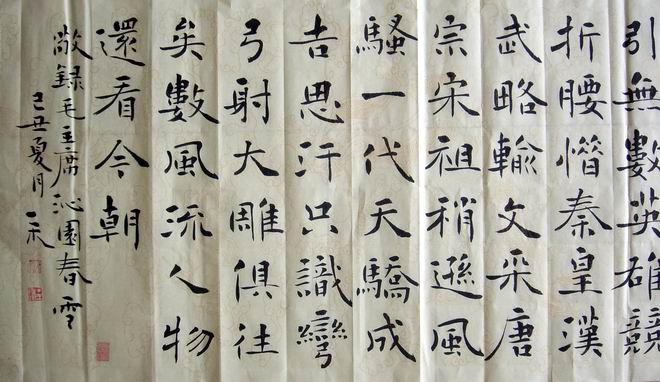 引無數英雄競
折腰惜秦皇漢
武略輸文采唐
宗宋祖稍遜風
騷一代天驕成
吉思汗只識彎
弓射大雕俱往
矣數風流人物
還看今朝
敬錄毛主席沁園春雪
己丑夏月一禾